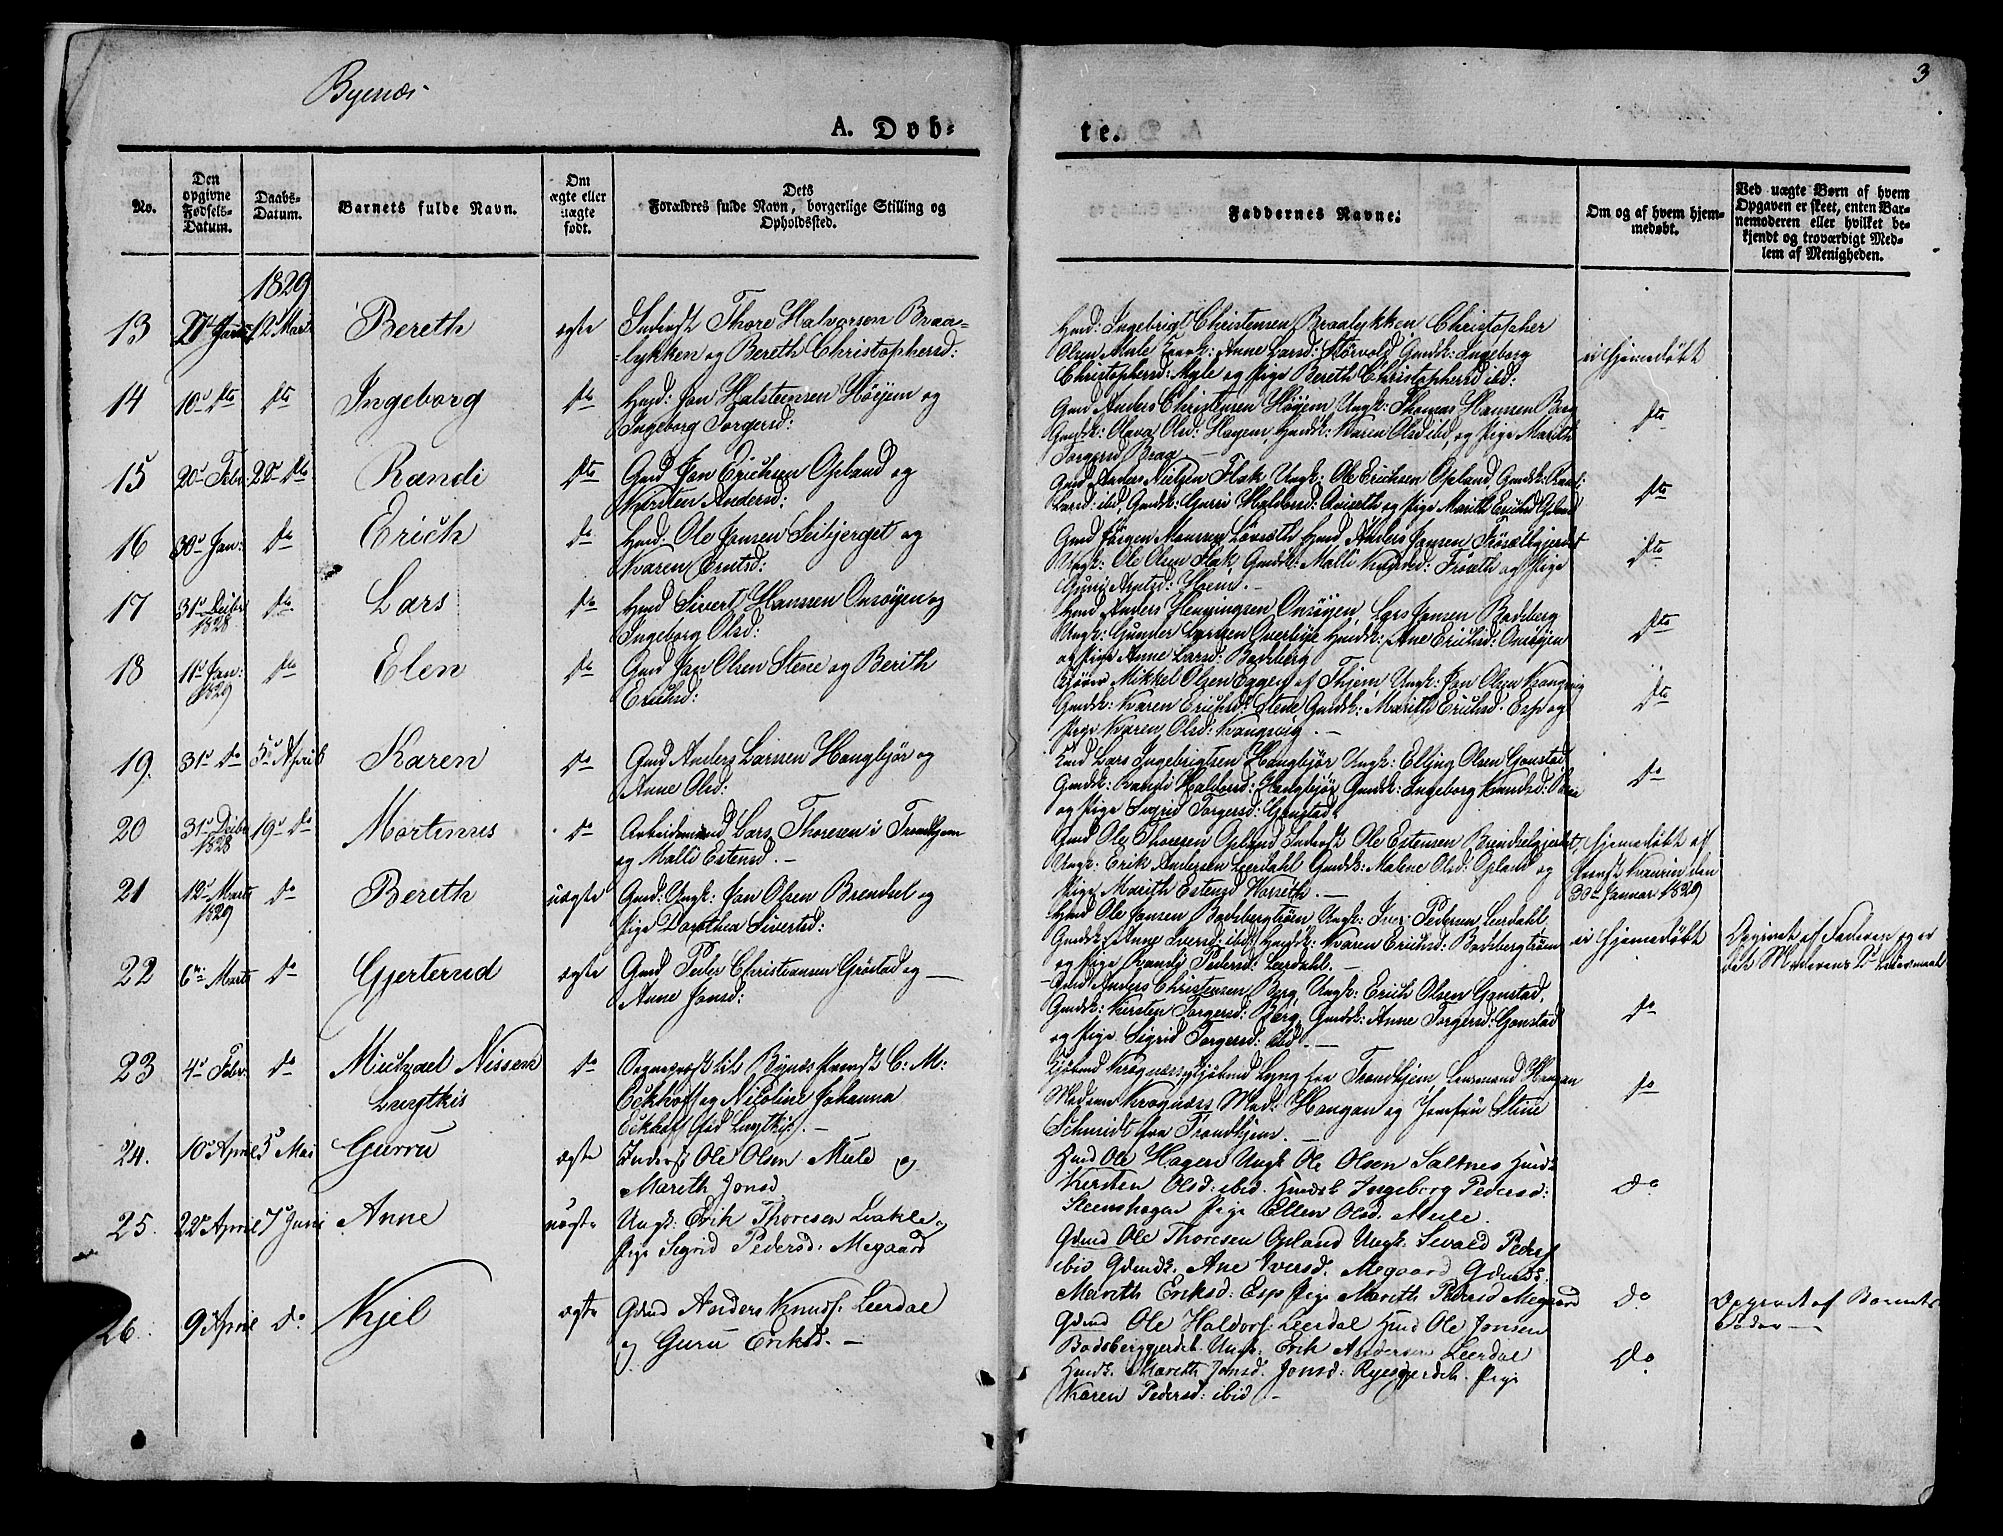 Byenæs
3
A. Døb-
te.
No.
Den opgivne Fødsels-Datum.
Daabs-Datum.
Barnets fulde Navn.
Om ægte eller uægte født.
Dets Forældres fulde Navn, borgerlige Stilling og Opholdssted.
Faddernes Navne.
Om og af hvem hjem-medøbt.
Ved uægte Børn af hvem Opgaven er skeet, enten Bar-nemoderen eller hvilket be-kjendt og troværdigt Med-lem af Menigheden.
1829
13 27 12 Marts Bereth ægte Inderst Thore Halvorsen Braa-
lykken og Bereth Christophersd:
Hmd: Ingebrigt Christensen Braalykken Christopher
Olsen Mule Anne Larsd: Gmdsk: Ingeborg
Christophersd: Myle og Pige Bereth Christophersd ibd:
ei hjemedøbt
14 10de dto dto Ingeborg do Hmd: Jon Halstensen Høyem og
Ingeborg Torgersd:
Gmd Anders Christensen Høyem, Ungk: Thomas Hanssen Berg
Gmdsk: Olava Olsd: Høyem, Hmdsk: Karen Olsd ibd, og Pige Marith
Torgersd Berg
dto
15 20de Febr: 22de dto Randi dto Gmd Jon Erichsen Opland og
Kirsten Andersd:
Gmd Anders Nielsen Flak, Ungk: Ole Erichsen Opland, Gmdsk:
Larsd: ibid, Gmdsk: Gurri Haldorsd: og Pige Marith Erichsd Opland
dto
16 30te Jan: do Erich do Hmd: Ole Jonsen og
Karen Erichsd:
Gmd Jørgen Monssen Hmd Anders Jonsen
Ungk: Ole Olsen Flak, Gmdsk: Malli og Pige
dto
17 31te Decbr 1828 do Lars do Hmd Sivert Hanssen Onsøyen og
Ingeborg Olsd:
Hmd Anders Henningsen Onsøyen, Lars Jonsen Bodsberg
Ungk: Gunder Larssen Hmdsk: Ane Erichsd: Onsøyen
og Pige Anne Larsd: Bodsberg
dto
18 11te Jan: 1829 do Elen do Gmd Jon Olsen Stene og Berith
Erichsd:
Mikkel Olsen Eggen af Ungk: Jon Olsen
Gmdsk: Karen Erichsd: Stene Gmdsk: Marith Erichsd. Esp og
Pige Karen Olsd:
dto
19. 31te do 5te April Karen do Gmd Anders Larsen Hangbjør og
Anne Olsd:
Lars Ingebrigtsen Hangbjør Ungk: Elling Olsen Gonstad
Gmdsk: Randi Haldorsd: Hangbjør Gmdsk: Ingeborg Knudsd:
og Pige Sigrid Torgersd: Gonstad.
do
20 31te Decbr 1828 19de do Mortinus do Arbeidsmand Lars Thoresen i Trondhjem
og Malli Estensd.
Gmd Ole Thoresen Opland Inderst Ole Estensen
Ungk: Erik Andersen Leerdahl Gmdsk: Malene Olsd: Opland og
Pige Marith Estensd
hjemedøbt af
den
30te Januar 1829
21 12te Marts 1829 do Bereth uægte Gmd: Ungk: Jon Olsen Brendsel og
Pige Dorothea Sivertsd:
Hmd Ole Jonsen Ungk: Iver Pedersen Leerdahl
Gmdsk: Anne Iversd: ibid Hmdsk: Karen Erichsd:
og Pige Randi Pedersd: Leerdahl.
ei hjemedøbt
Opgivet af Faderen og er
det Moderens 2det Leiermaal
22 6te Marts do Gjerterud ægte Gmd Peder Christiansen og
Anne Jonsd:
Gmd Anders Christensen Berg, Ungk: Erich Olsen Gonstad,
Gmdsk: Kirsten Torgersd: Berg, Gmdsk: Anne Torgersd: Gonstad
og Pige Sigrid Torgersd: ibid.
do
23 4de Febr: do Michael Nissen
Luytkis
do Sognepræst til C: M:
Eckhoff og Nicoline Johanna
Eckhoff
Kjøbmd Kjøbmd Lyng fra Trondhjem, Lensmand Haugan
Madam Mad: Haugan og Jomfru Stine
Schmidt fra Trondhjem.
do
24. 10de April 3de Mai Gurru ægte Inderst Ole Olsen Mule og
Mareth Jonsd
Hmd Ole Hagen Ungk Ole Olsen Saltnes Hmdsk
Kersten Olsd: ibid. Hmdsk Ingeborg Pedersd:
Steenshagen Pige Ellen Olsd. Mule.
do
25. 22de April 7de Juni Anne uægte Ungk: Erik Thoresen og
Pige Segrid Pedersd: Megaard
Gdmd Ole Thoresen Opland Ungk: Sevald Peders
ibid Gdmdsk. Ane Iversd. Megaard Gdmdsk.
Mareth Eriksd: Esp Pige Mareth Pedersd Megaard
do
Opgivet af Barnets
Fader
26. 9de April do Kjel ægte Gdmd Anders Knuds. Leerdal
og Guru Eriksd.
Gdmd Ole Haldors. Leerdal Hmd Ole Jonsen
Bodsberggjerdet. Ungk. Erik Andersen Leerdal
Hmdsk. Mareth Jonsd. Jonsd: Ryesgjerdet. Pige
Karen Pedersd: ibid
do